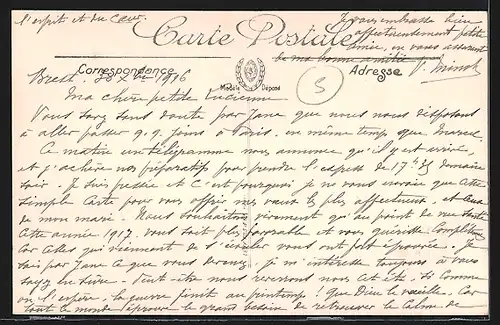 l'esprit et du cœur.
Je vous embrasse bien
affectueusement petite
amie, en vous assurant
de ma bonne amitié
Carte Postale
Correspondance
Adresse
Modèle Déposé
Brest 1916
Ma chère petite Lucienne
Vous savez sans doute par Jane que nous nous disposons
à aller passer q.q. jours à Paris, en même temps que Marcel.
Ce matin un télégramme nous annonce qu'il y est arrivé
et j'achève nos préparatifs pour prendre l'express de 17h demain
soir. Je suis pressée et c'est pourquoi je ne vous envoie que cette
simple carte pour vous offrir mes vœux les plus affectueux et ceux
de mon mari. Nous souhaitons vivement qu'au point de vue santé
cette année 1917 vous soit plus favorable et vous guérisse complètement
car celles qui viennent de s'écouler vous ont fort éprouvée. Je
sais par Jane ce que vous devenez, je m'intéresse toujours à vous
soyez en sûre. Peut-être nous reverrons-nous cet été, si comme
on l'espère, la guerre finit au printemps; que Dieu le veuille. Car
tout le monde éprouve le grand besoin de retrouver le calme de